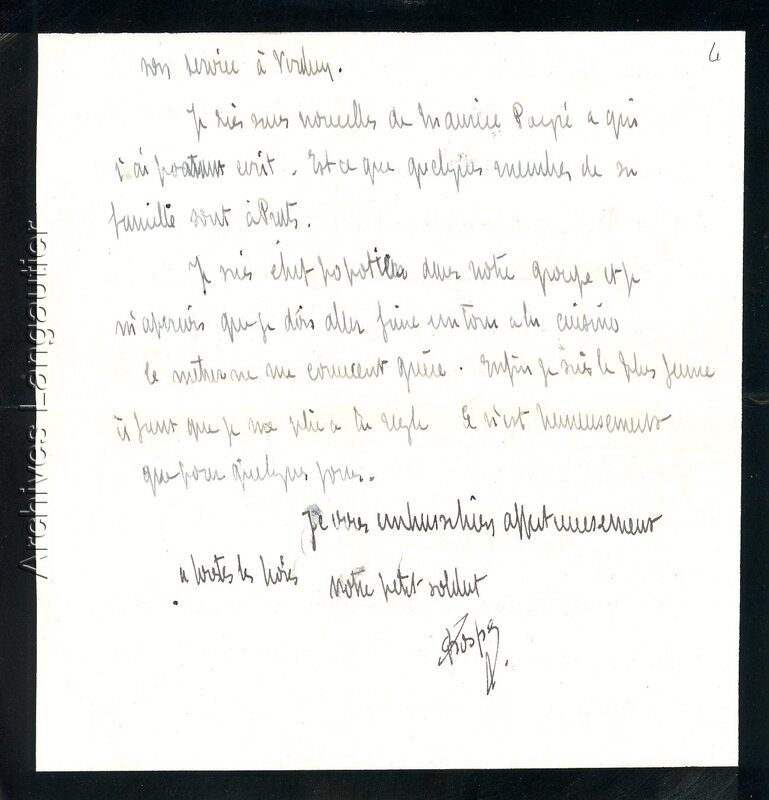 4
son service à Verdun.
Je suis sans nouvelles de Maurice a qui
j'ai pourtant ecrit. Est ce que quelques membres de sa
famille sont à Prats.
Je suis chef popotier dans notre groupe et je
m'apercois que je dois aller faire un tour a la cuisine
Ce metier ne me convient guère. Enfin je suis le plus jeune
il faut que je me plie a la regle Ce n'est heureusement
que pour quelques jours.
Je vous embrasse bien affectueusement
a toutes les trois votre petit soldat
Archives Langautier